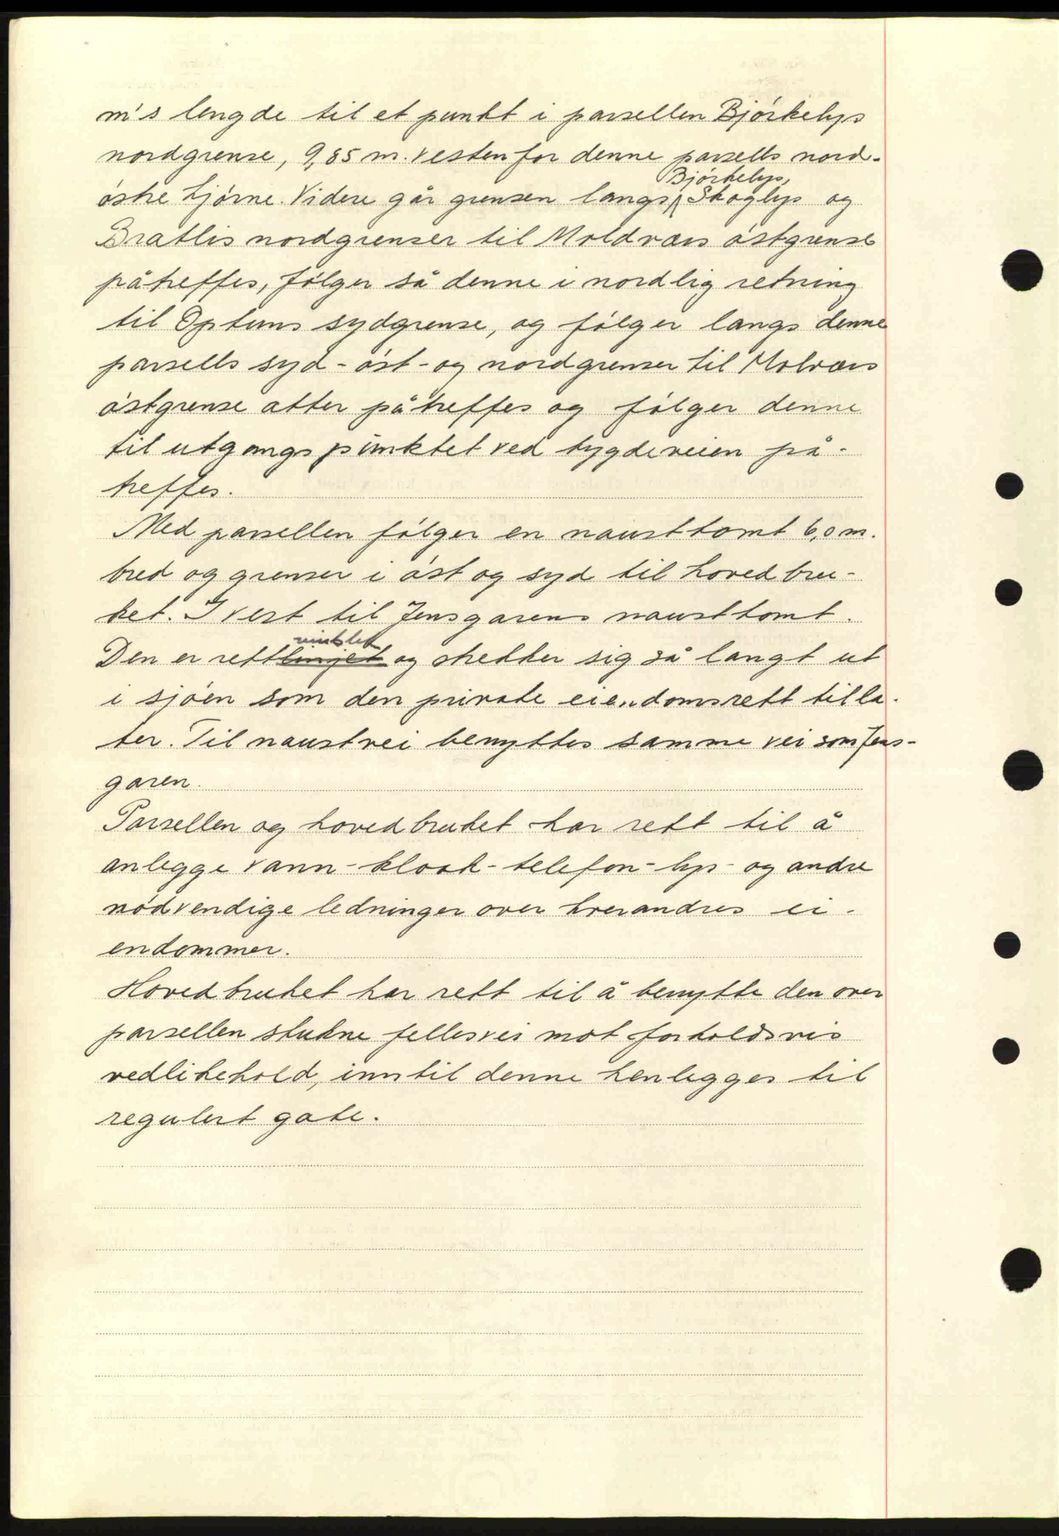 m's lengde til et punkt i parsellen Björkelys
nordgrense, 9,85 m. vestenfor denne parsells nord-
östre hjörne. Videre går grensen langs Björkelys, Skoglys og
Bratlis nordgrenser til Moldværs östgrense
påtreffes, fölger så denne i nordlig retning
til Optuns sydgrense, og fölger langs denne
parsells syd- öst- og nordgrenser til Molværs
östgrense atter påtreffes og fölger denne
til utgangspunktet ved bygdeveien på-
treffes.
Med parsellen fölger en nausttomt 6,0 m.
bred og grenser i öst og syd til hovedbru-
ket. I vest til Jensgarens nausttomt.
Den er rettvinklet og strekker sig så langt ut
i sjöen som den private eiendomsrett tilla-
ter. Til naustvei benyttes samme vei som Jens-
garen.
Parsellen og hovedbruket har rett til å
anlegge vann- kloak- telefon- lys- og andre
nödvendige ledninger over hverandres ei-
endommer.
Hovedbruket har rett til å benytte den over
parsellen stukne fellesvei mot forholdsvis
vedlikehold, inntil denne henlegges til
regulert gate.